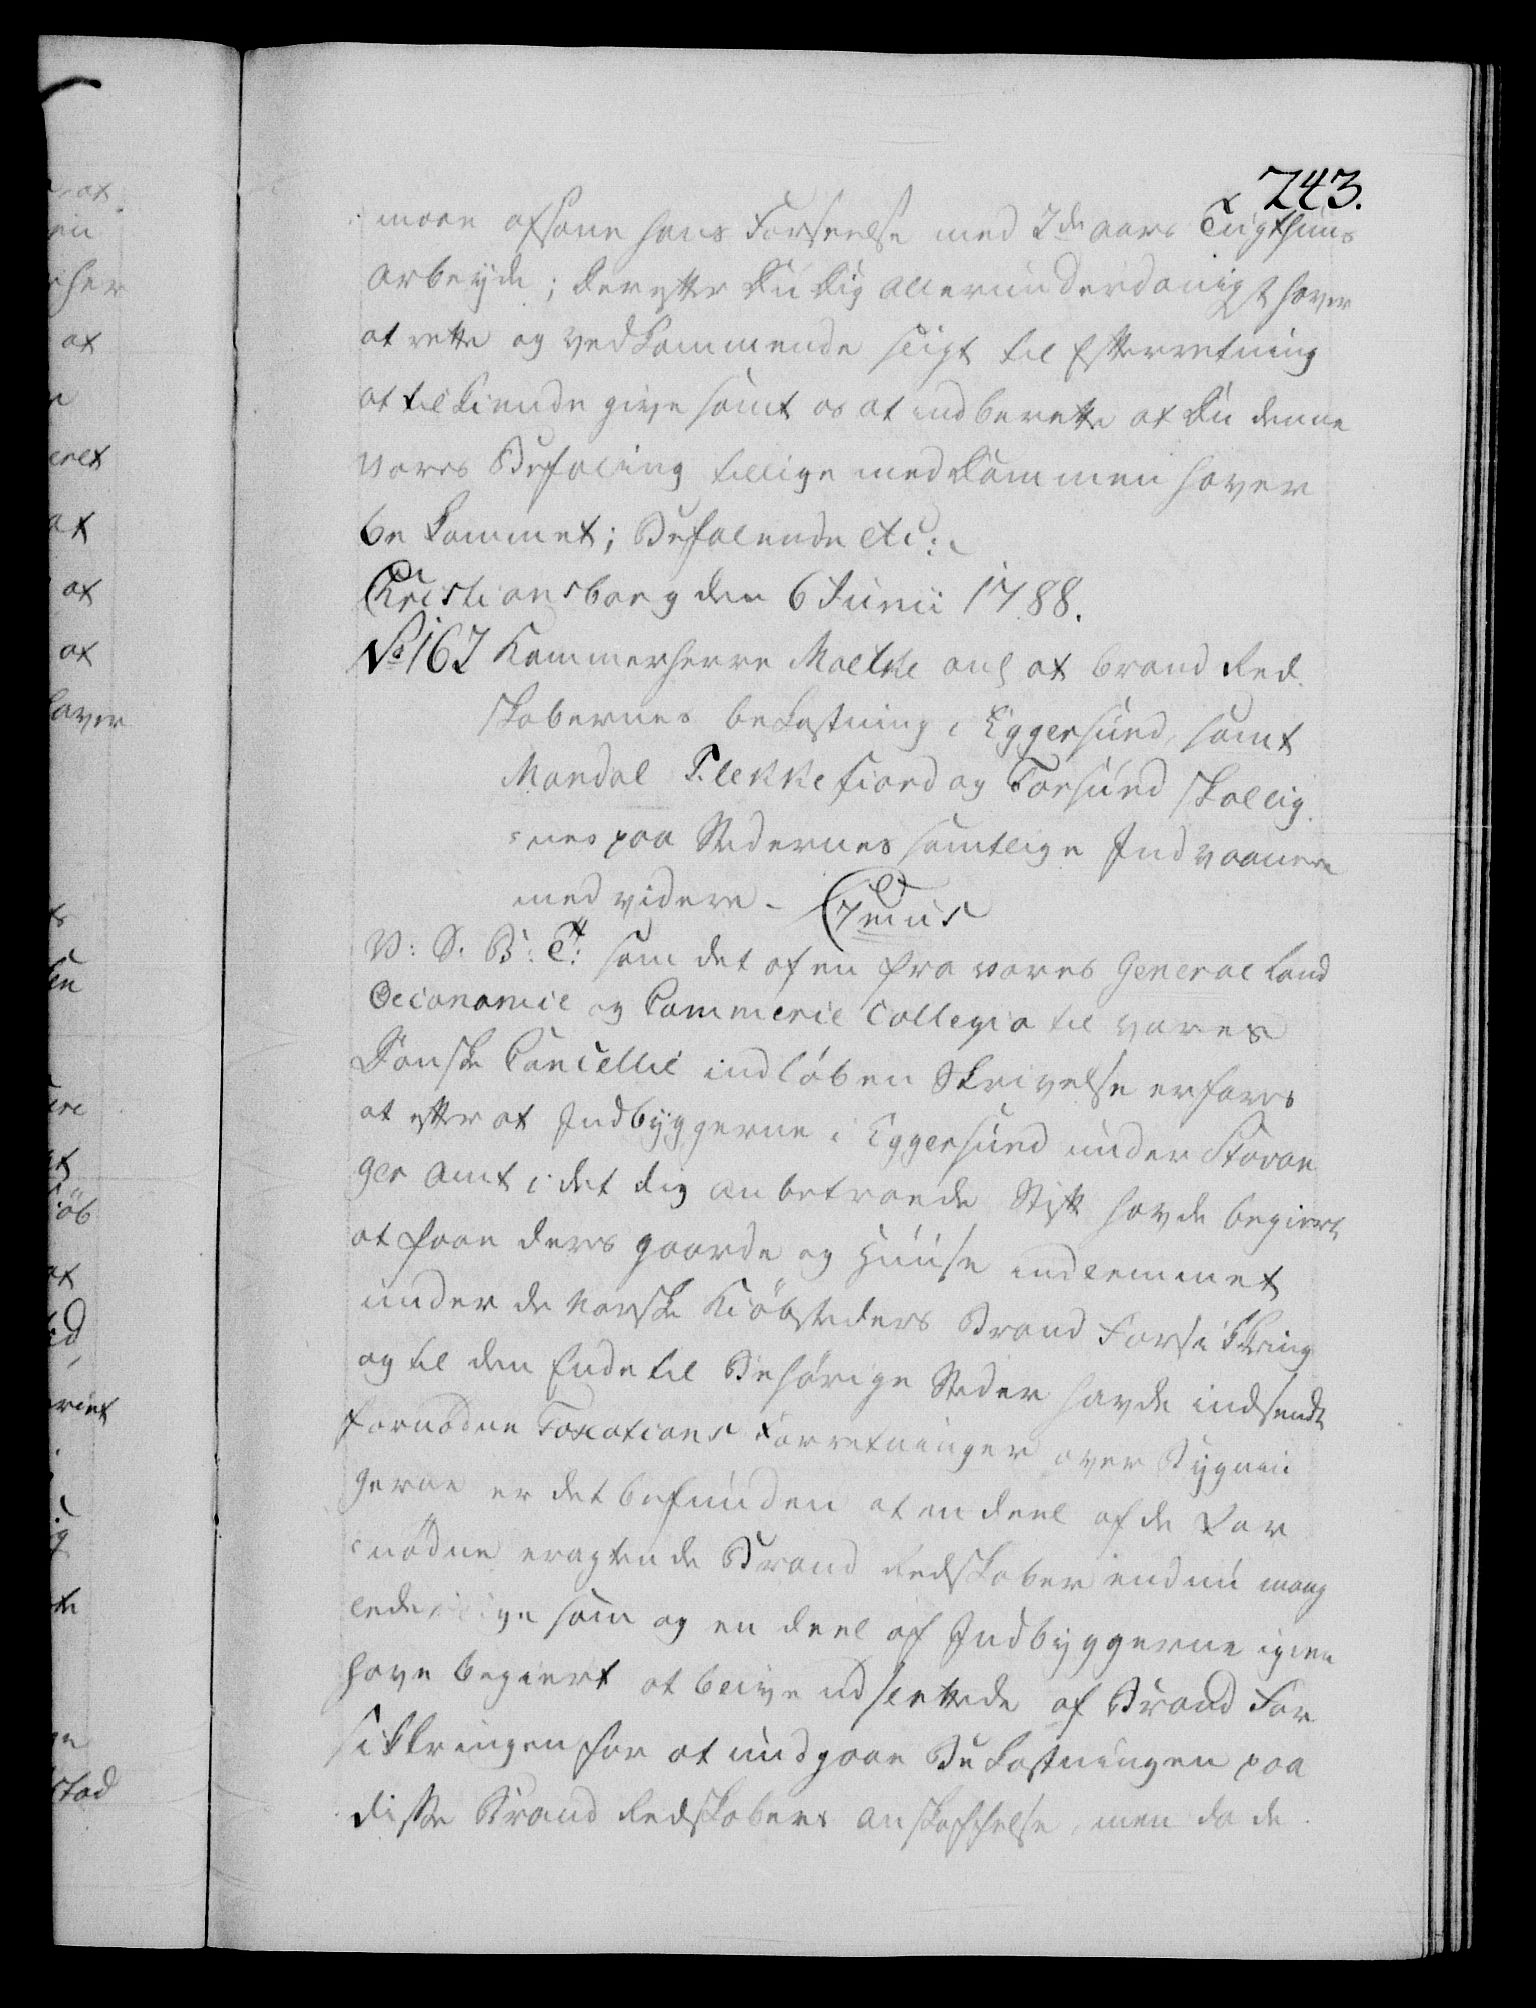 243.
maae afsone hans Forseelse med 2de aars Tugthuus
arbeyde; derefter Du Dig allerunderdanigst haver
at rette og vedkommende sligt til Efterretning
at tilkiende give samt os at indberette at Du denne
vores Befaling tillige med Dommen haver
bekommet; Befalende etc:
Christiansborg den 6 Junii 1788.
No 167 Kammerherre Moltke ang at brand Red
skabernes bekostning i Eggersund, samt
Mandal Flekkefiord og Farsund skal lig
nes paa Stedernes samtlige Indvaanere
med videre -
V: S: B: T: som det af en fra vores General Land
Oeconomie og Commerce Collegio til vores
Danske Cancellie indløben Skrivelse erfares
at efter at Indbyggerne i Eggersund under Stavan
ger amt i det dig anbetroede Stift havde begiert
at faae deres gaarde og Huuse indlemmet
under de Norske Kiöbsteders Brand Forsikkring
og til den Ende til Behörige Steder havde indsendt
fornödne Taxations Forretninger over Bygnin
gerne er det befunden at en deel af de For
nödne eragtende Brand Redskaber endnu mang
lede, lige som og en deel af Indbyggerne igien
have begiert at blive udslettede af Brand For
sikkringen for at undgaae Bekostningen paa
disse Brand Redskabers anskaffelse, men da de